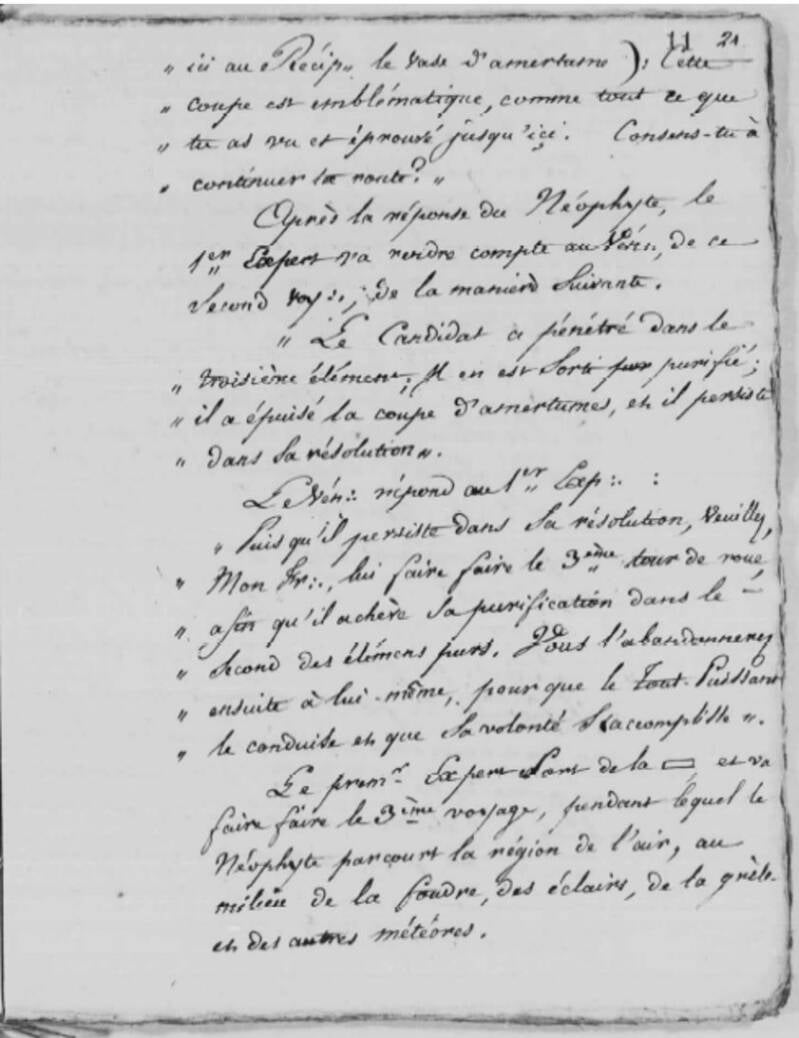 11 21
" ici au Récip" le vase d'amertume ): Cette
" coupe est emblématique, comme tout ce que
" tu as vu et éprouvé jusqu'içi. Consens-tu à
" continuer ta route? "
Après la réponse du Néophyte, le
1er Expert va rendre compte au Vén∴, de ce
second voy∴; de la manière suivante.
" Le Candidat a pénétré dans le
" troisième élément; Il en est sorti pur purifié;
" il a épuisé la coupe d'amertumes, et il persiste
" dans sa résolution ".
Le Vén∴ répond au 1er Exp∴ :
" Puisqu'il persiste dans sa résolution, veuillez,
" Mon Fr∴, lui faire faire le 3ème tour de roue,
" afin qu'il achève sa purification dans le
" second des élémens purs. Vous l'abandonnerez
" ensuite à lui-même, pour que le Tout-Puissant
" le conduise et que sa volonté s'accomplisse ".
Le premr Expert sort de la ▭ et va
faire faire le 3ème voyage, pendant lequel le
Néophyte parcourt la région de l'air, au
milieu de la foudre, des éclairs, de la grêle
et des autres météores.